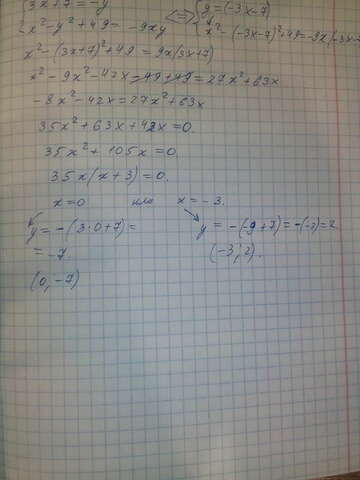 { 3x+7=-y
{ x²-y²+49= -9xy <=> { y=(-3x-7)
{ x²-(-3x-7)²+49=-9x(-3x-7)
x²-(3x+7)²+49 = 9x(3x+7)
x²-9x²-42x-49+49=27x²+63x
-8x²-42x=27x²+63x
35x²+63x+42x=0.
35x²+105x=0.
35x(x+3)=0.
x=0 или x=-3.
y=-(3·0+7)=
=-7
(0,-7)
y= -(-9+7)=-(-2)=2
(-3; 2).